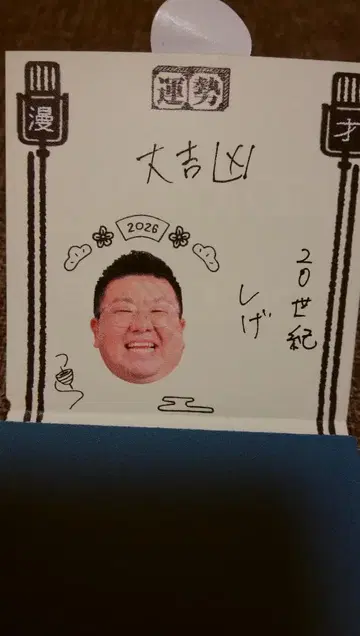 運勢
漫
才
大吉凶
2026
20世紀
しげ